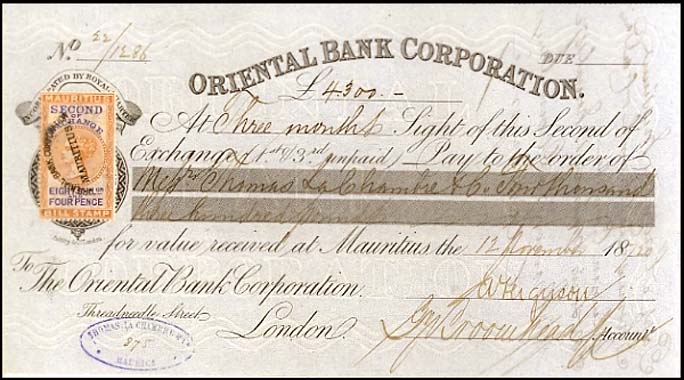 No 22/1286
DUE
ORIENTAL BANK CORPORATION.
INCORPORATED BY ROYAL CHARTER
£4300.-
MAURITIUS
SECOND
OF
EXCHANGE
MAURITIUS
FOUR PENCE
BILL STAMP
At Three months Sight of this Second of
Exchange (1st & 3rd unpaid) Pay to the order of
Messrs Thomas La Chambre & Co four thousand
three hundred pounds
for value received at Mauritius the 12 November 18
To
The Oriental Bank Corporation.
Threadneedle Street
London.
Account
THOMAS LA CHAMBRE
875